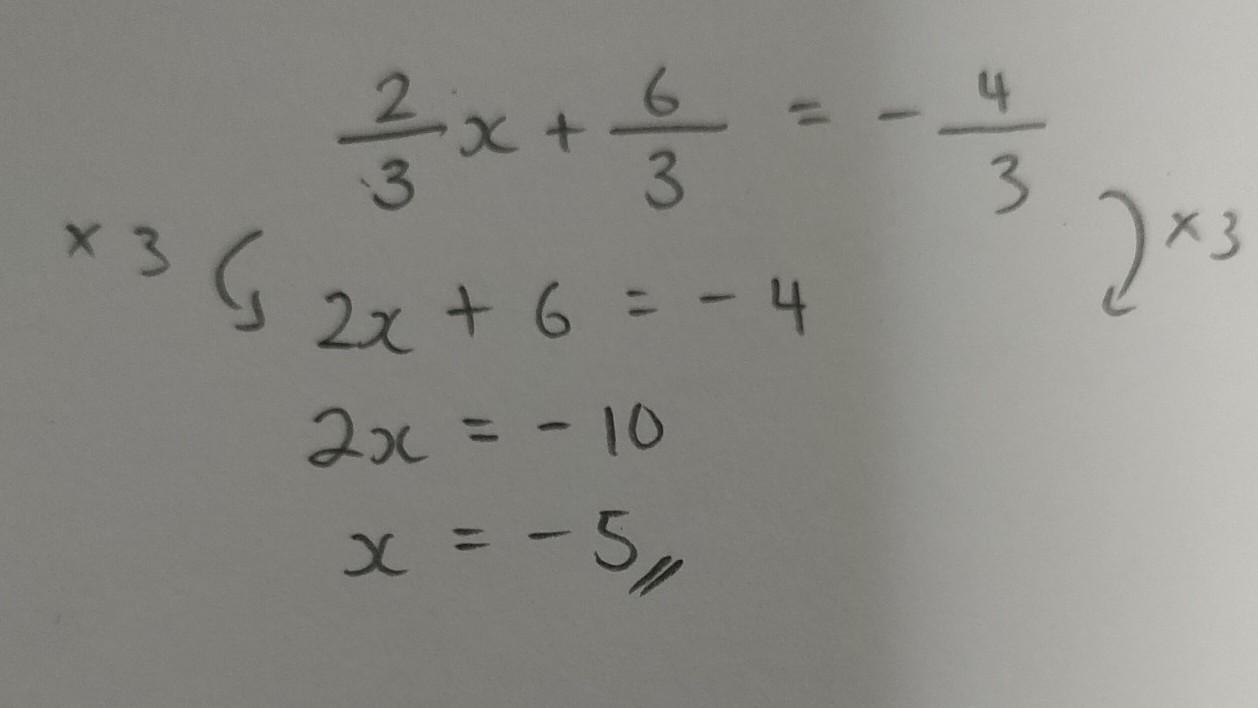 2/3 x + 6/3 = - 4/3
× 3 × 3
2x + 6 = - 4
2x = - 10
x = - 5 //